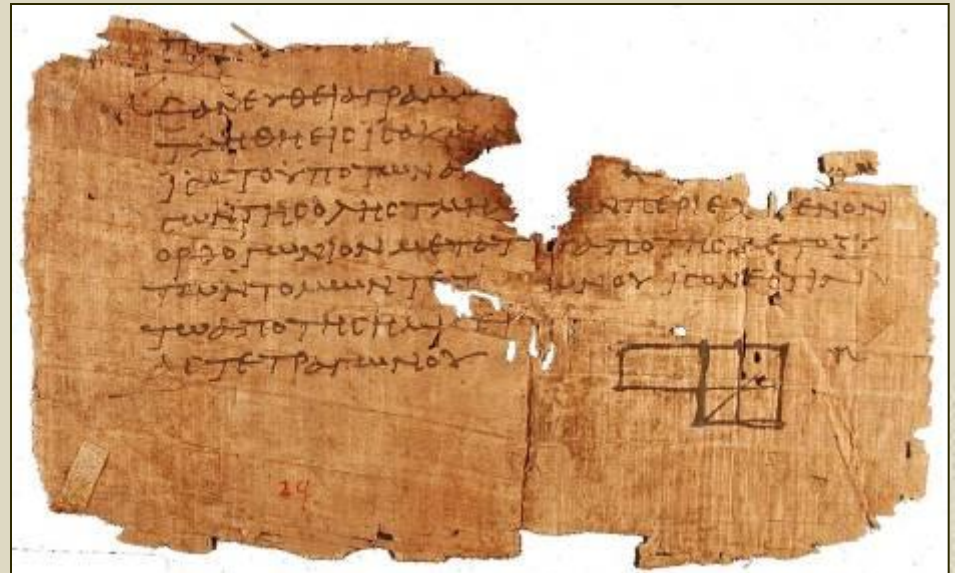 ΕΑΝΕΥΘΕΙΑΓΡΑΜΜ
ΤΜΗΘΗΕΙϹΙϹΑΚΑΙ
ΙϹΑΤΟΥΠΟΤΩΝΑ
ϹΩΝΤΗϹΟΛΗϹΤΜΗΜ ΩΝΠΕΡΙΕΧΟΜΕΝΟΝ
ΟΡΘΟΓΩΝΙΟΝΜΕΤΑΤ ΑΠΟΤΗϹΜΕΤΟΞΥ
ΤΩΝΤΟΜΩΝΤΕΤ ΩΝΟΥΙϹΟΝΕϹΤΙΝ
ΤΩΑΠΟΤΗϹΗΜΙϹΕΙ
ΑϹΤΕΤΡΑΓΩΝΟΥ
29